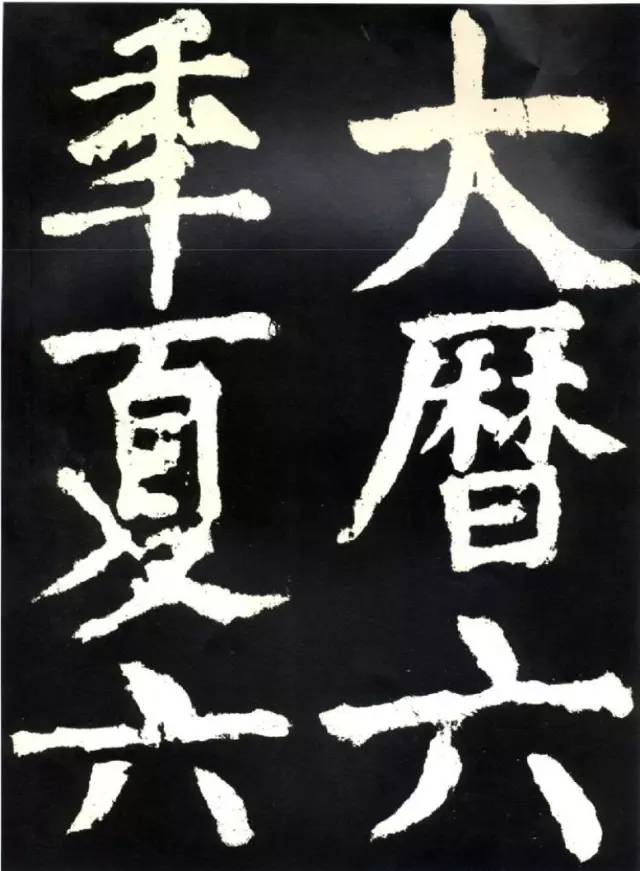 大曆六
秊夏六